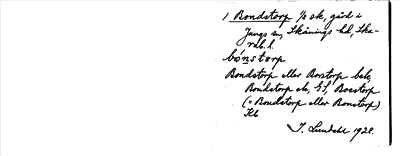 1 Bondstorp 1/2 sk, gård i
Jungs sn, Skånings hd, Ska-
rab. l.
bónstorp
Bondstorp eller Borstorp bebr,
Bondstorp eb, GS, Boestorp
(= Bondstorp eller Bonstorp)
Kb
I. Lundahl 1928.